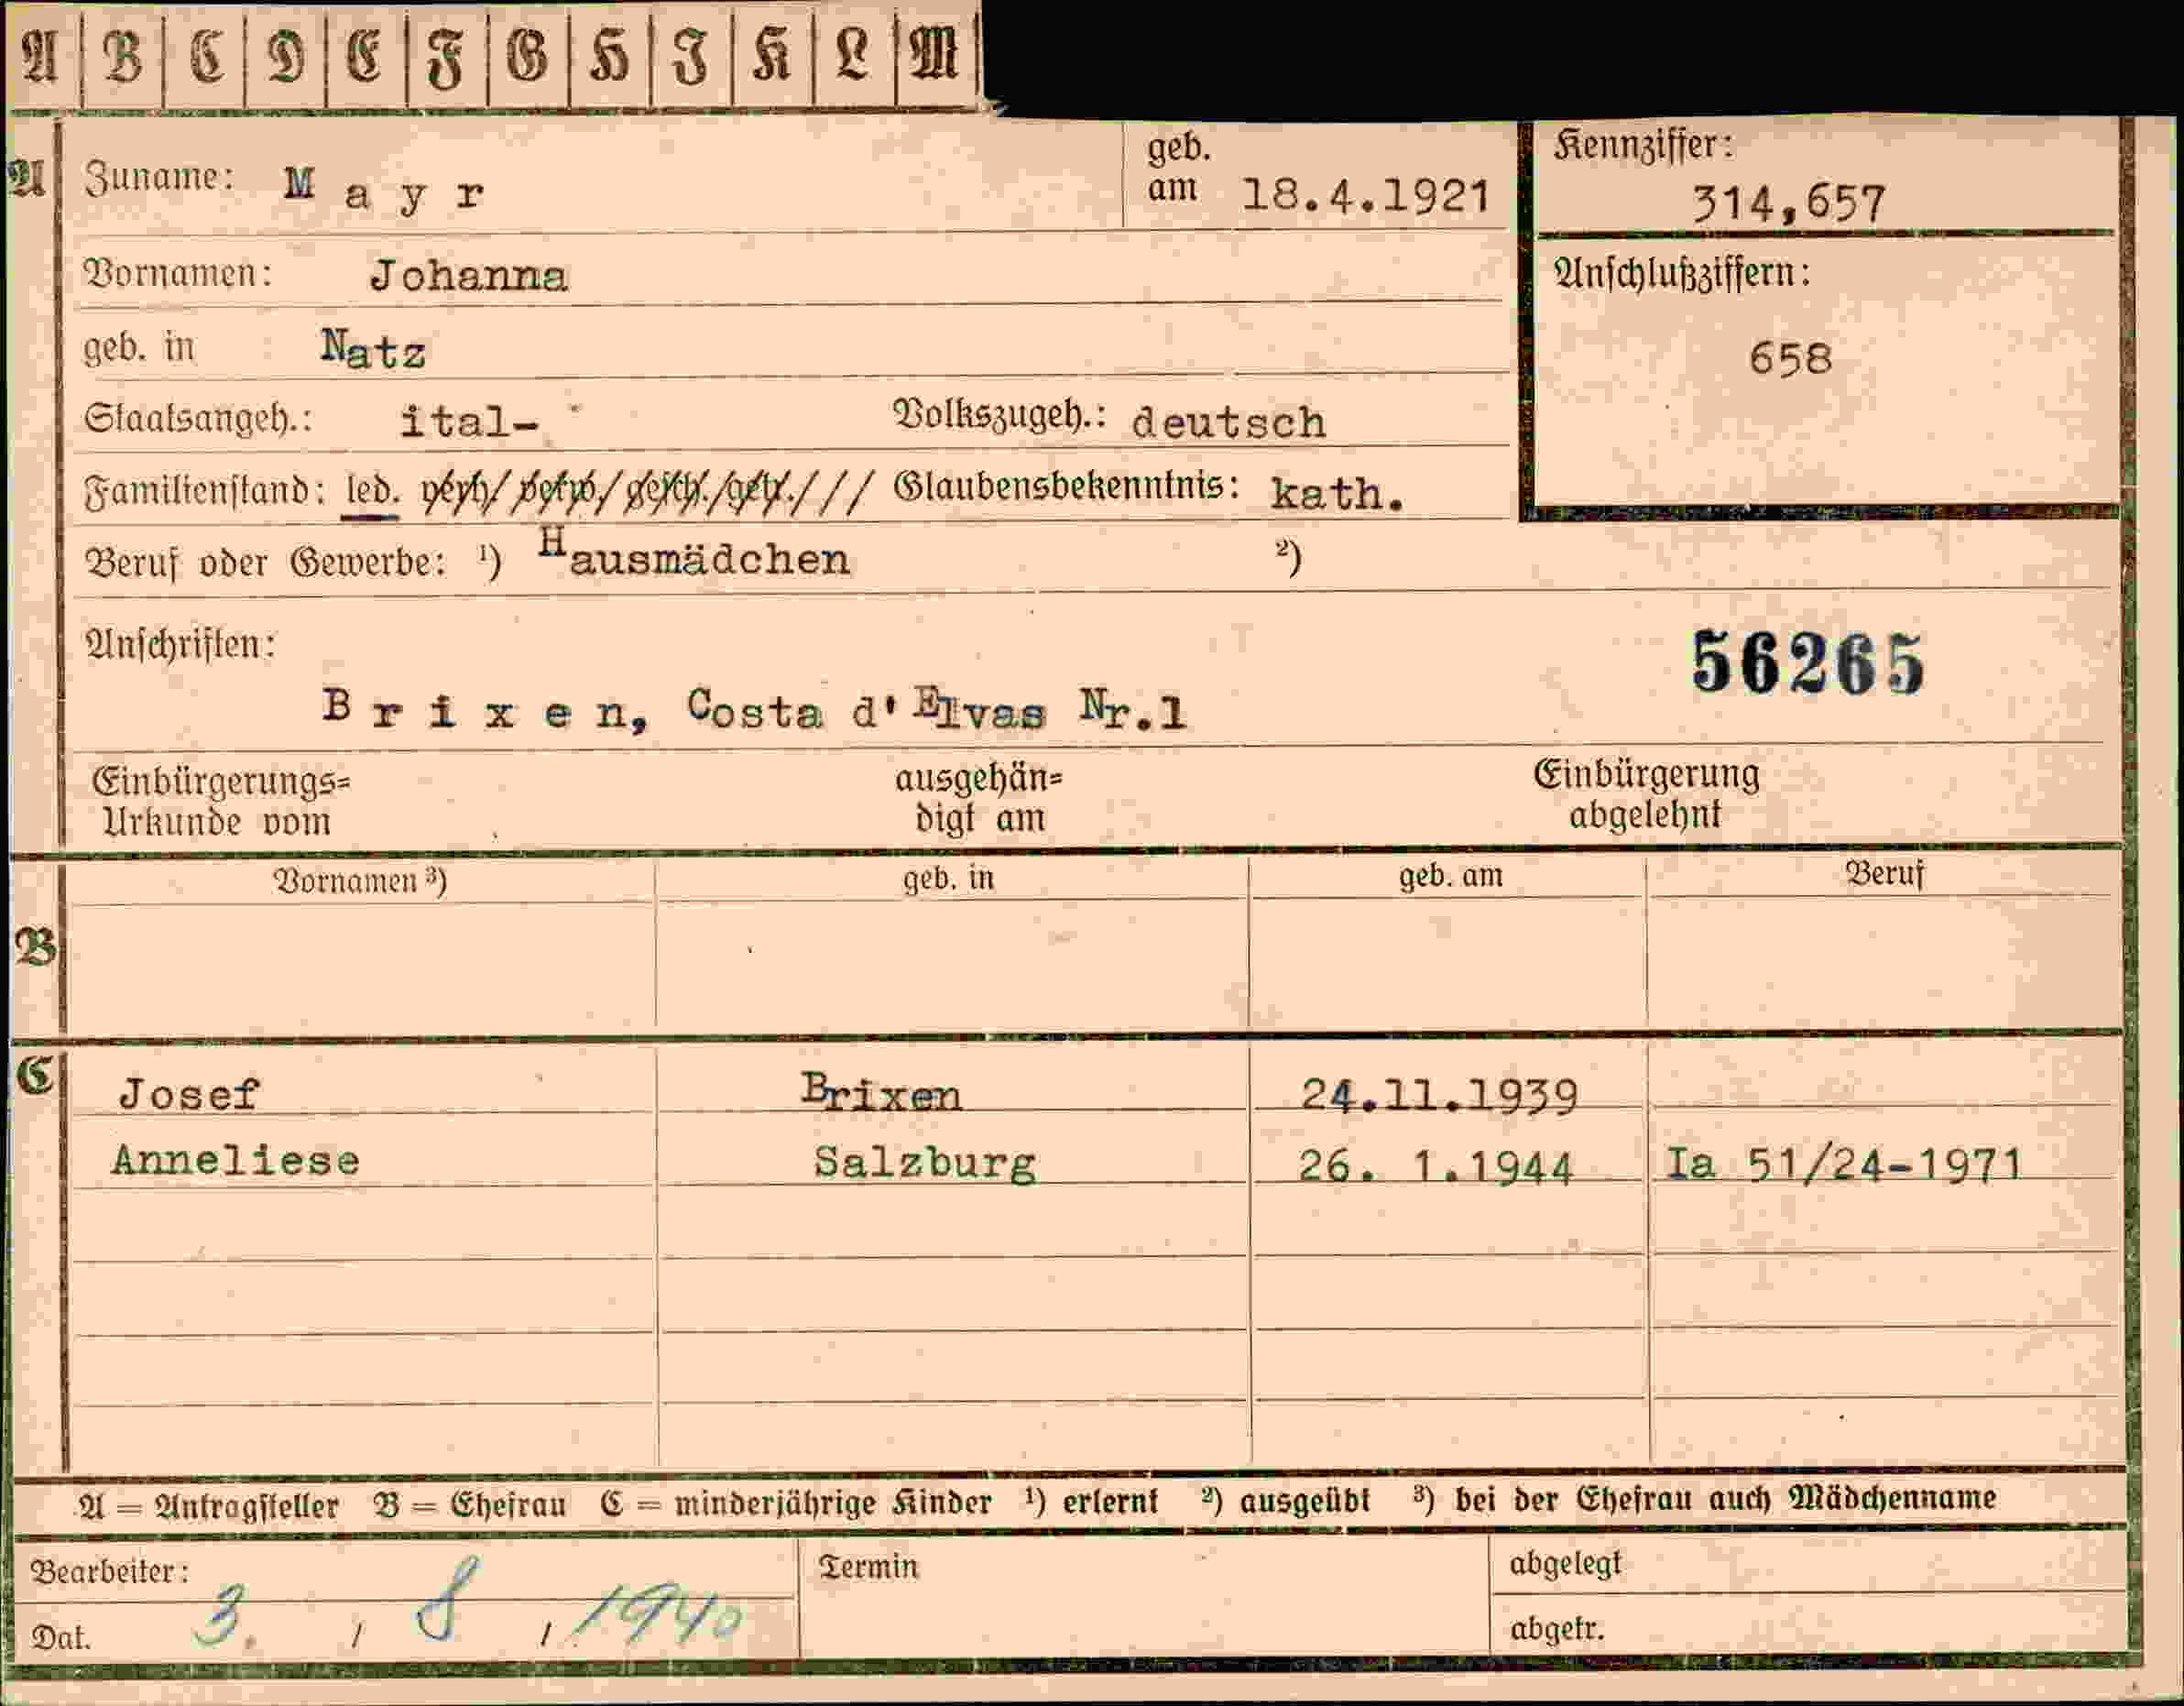 A B C D E F G H J K L M
A Zuname: Mayr geb. am 18.4.1921 Kennziffer: 314,657
Vornamen: Johanna Anschlußziffern:
geb. in Natz 658
Staatsangeh.: ital- Volkszugeh.: deutsch
Familienstand: led. verh. gesch. Glaubensbekenntnis: kath.
Beruf oder Gewerbe: ¹) Hausmädchen ²)
Anschriften: 56265
Brixen, Costa d'Elvas Nr.1
Einbürgerungs= ausgehän= Einbürgerung
Urkunde vom digt am abgelehnt
Vornamen ³) geb. in geb. am Beruf
B
C Josef Brixen 24.11.1939
Anneliese Salzburg 26. 1.1944 Ia 51/24-1971
A = Antragsteller B = Ehefrau C = minderjährige Kinder ¹) erlernt ²) ausgeübt ³) bei der Ehefrau auch Mädchenname
Bearbeiter: Termin abgelegt
Dat. 3. / 8 / 1940 abgetr.